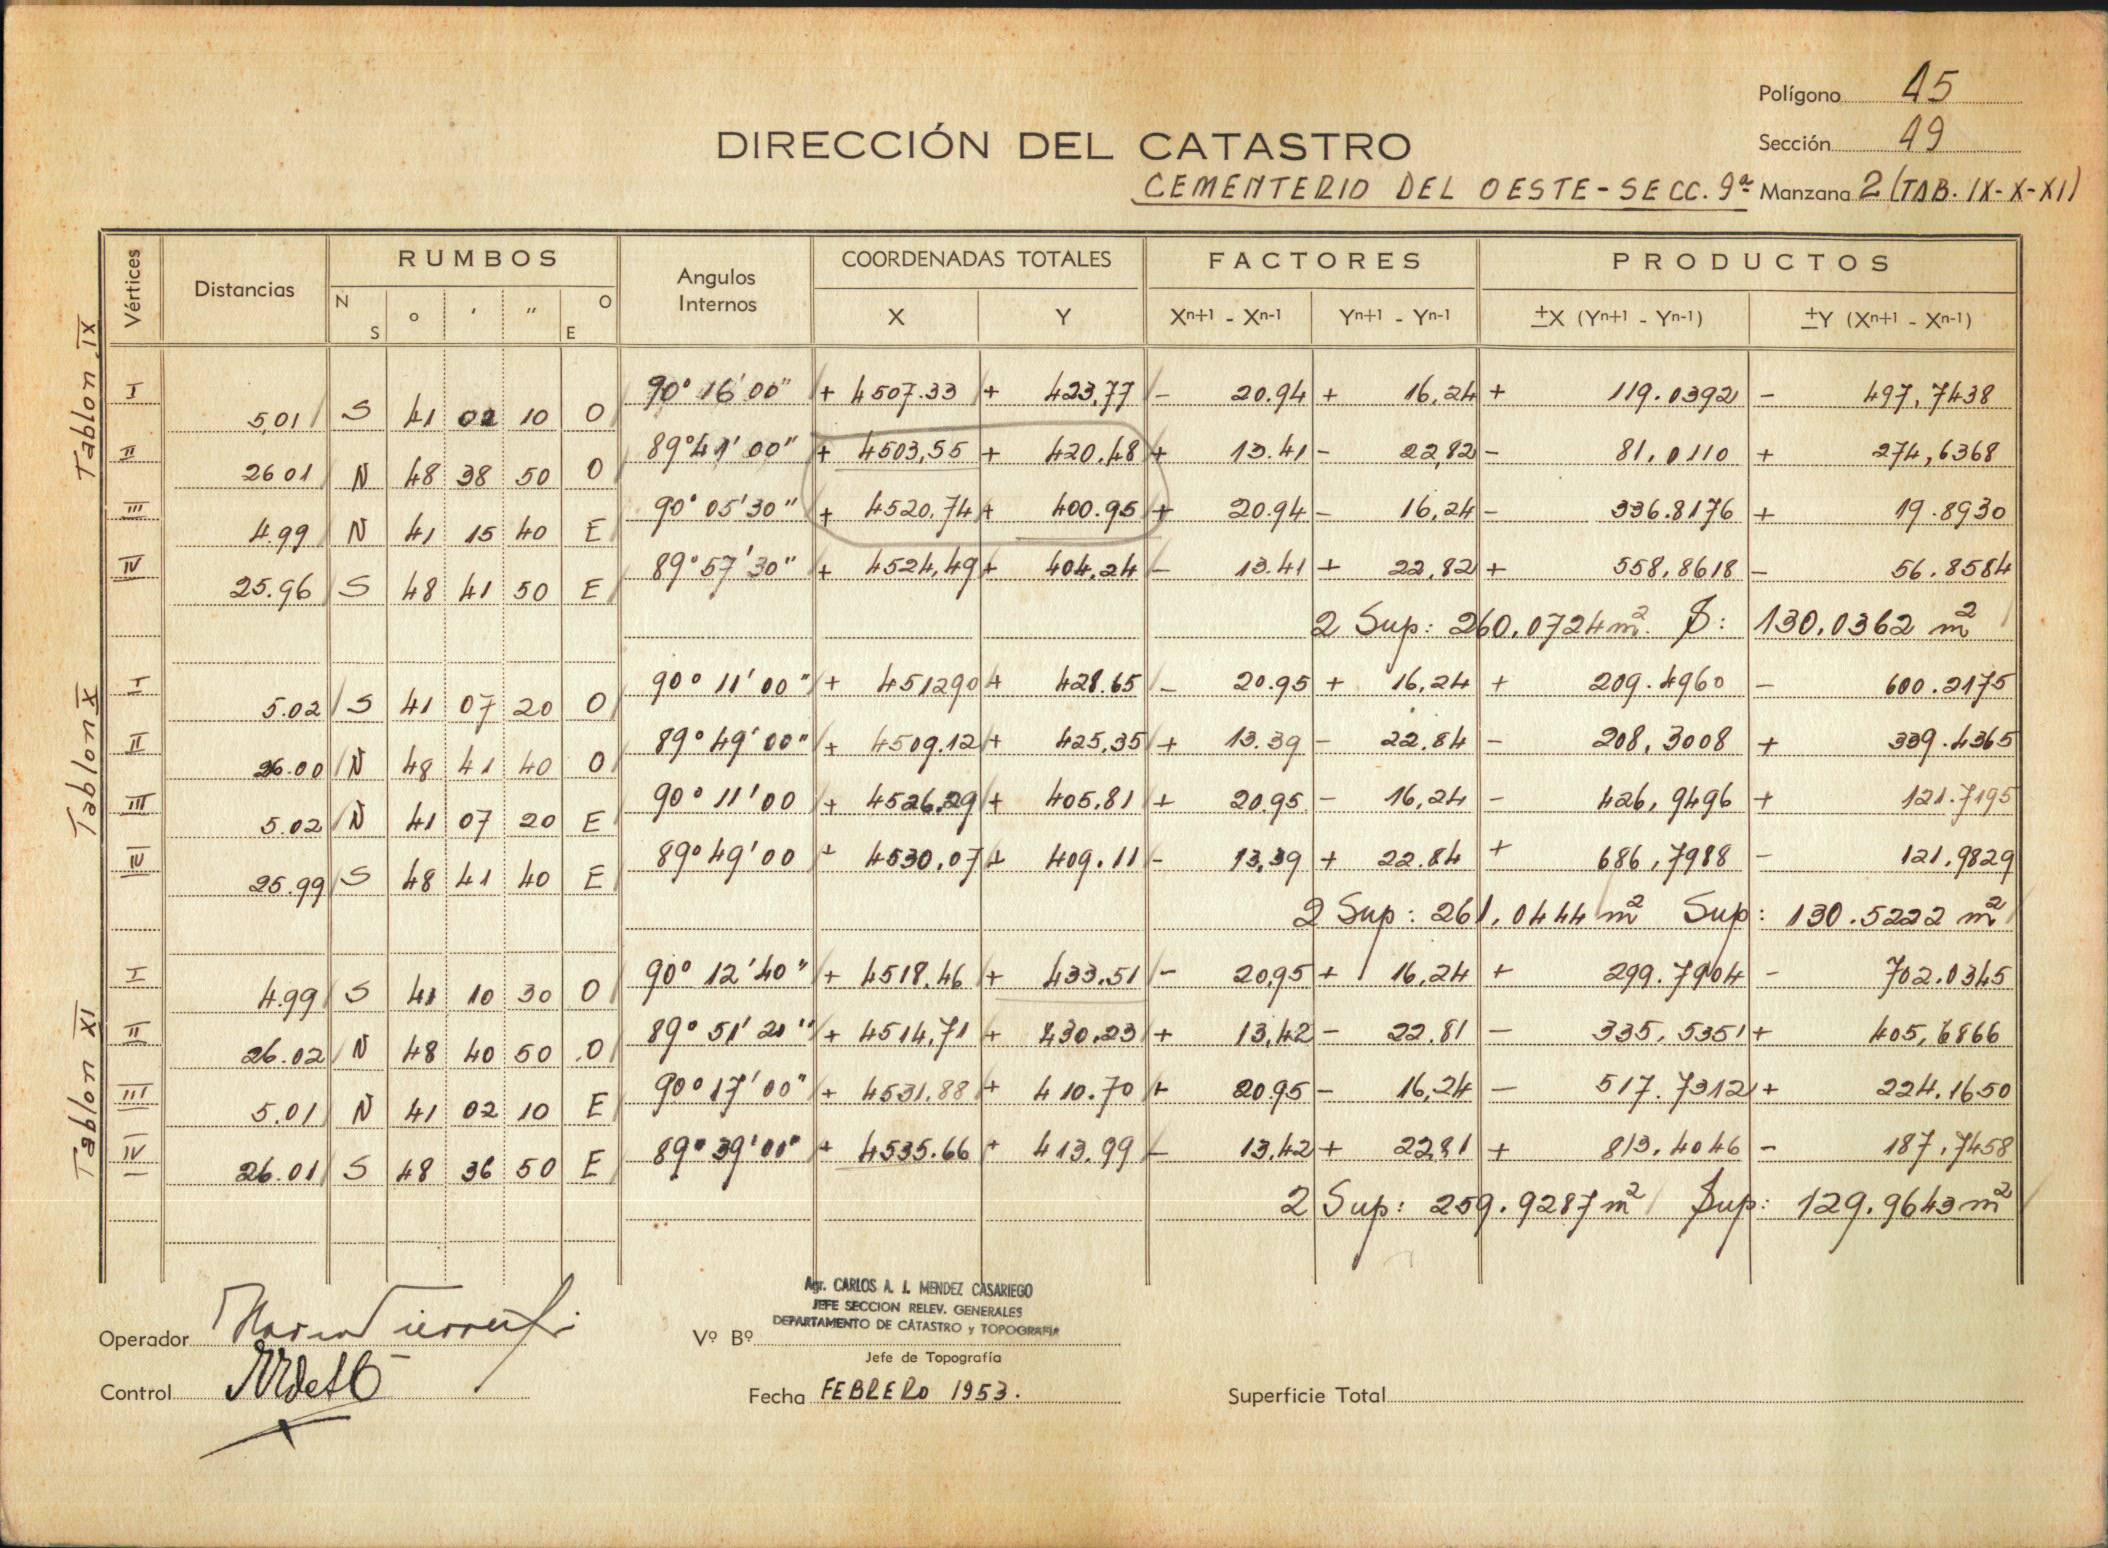 Polígono 15
DIRECCIÓN DEL CATASTRO
Sección 19
CEMENTERIO DEL OESTE-SECC. 9ª Manzana 2 (TAB. IX-X-XI)
Vértices Distancias RUMBOS Angulos Internos COORDENADAS TOTALES FACTORES PRODUCTOS
N S ° ' " O E X Y Xn+1 - Xn-1 Yn+1 - Yn-1 ±X (Yn+1 - Yn-1) ±Y (Xn+1 - Xn-1)
Tablon IX
I 90° 16' 00" + 4507.33 + 423,77 - 20.94 + 16,24 + 119.0392 - 497,7438
5,01 S 41 02 10 O
II 89° 41' 00" + 4503,55 + 420.48 + 13.41 - 22,82 - 81,0110 + 274,6368
26 01 N 48 38 50 O
III 90° 05' 30" + 4520,74 + 400.95 + 20.94 - 16,24 - 336.8176 + 19.8930
4.99 N 41 15 40 E
IV 89° 57' 30" + 4524,49 + 404,24 - 13.41 + 22,82 + 558,8618 - 56.8584
25.96 S 48 41 50 E
2 Sup: 260.0724 m². S: 130,0362 m²
Tablon X
I 90° 11' 00" + 451290 + 428.65 - 20.95 + 16,24 + 209.4960 - 600.2175
5.02 S 41 07 20 O
II 89° 49' 00" + 4509.12 + 425,35 + 13.39 - 22.84 - 208,3008 + 339.4365
26.00 N 48 41 40 O
III 90° 11' 00 + 4526,29 + 405,81 + 20,95 - 16,24 - 426,9496 + 121.7195
5.02 N 41 07 20 E
IV 89° 49' 00 + 4530,07 + 409.11 - 13,39 + 22.84 + 686,7988 - 121,9829
25.99 S 48 41 40 E
2 Sup: 261,0444 m² Sup: 130.5222 m²
Tablon XI
I 90° 12' 40" + 4518,46 + 433,51 - 20,95 + 16,24 + 299.7904 - 702.0345
4.99 S 41 10 30 O
II 89° 51' 21" + 4514,71 + 430,23 + 13,42 - 22.81 - 335,5351 + 405,6866
26.02 N 48 40 50 O
III 90° 17' 00" + 4531,88 + 410.70 + 20.95 - 16,24 - 517.7312 + 224,1650
5.01 N 41 02 10 E
IV 89° 39' 00" + 4535.66 + 413.99 - 13,42 + 22,81 + 813,4046 - 187,7458
26.01 S 48 36 50 E
2 Sup: 259.9287 m² Sup: 129.9643 m²
Agr. CARLOS A. J. MENDEZ CASARIEGO
JEFE SECCION RELEV. GENERALES
DEPARTAMENTO DE CATASTRO y TOPOGRAFIA
Operador
Vº Bº
Jefe de Topografía
Control
Fecha FEBRERO 1953.
Superficie Total